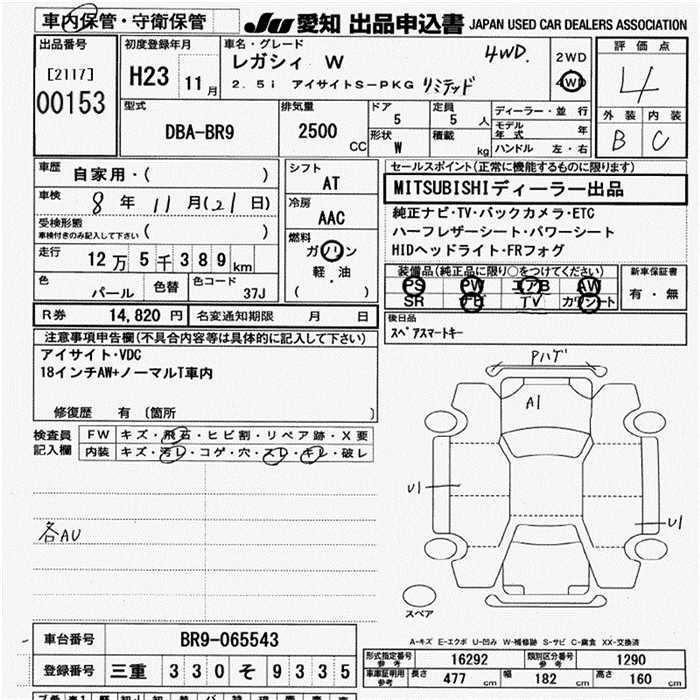 車内保管・守衛保管
JU 愛知 出品申込書 JAPAN USED CAR DEALERS ASSOCIATION
出品番号
[2117]
00153
初度登録年月
H23 11月
車名・グレード
レガシィ W 4WD.
2.5i アイサイトS-PKG リミテッド
2WD
4WD
評価点
4
外装 内装
B C
型式
DBA-BR9
排気量
2500 CC
ドア
5
定員
5 人
形状
W
積載
kg
ディーラー・並行
モデル年式 年
ハンドル 左・右
車歴
自家用・( )
車検
8年 11月(21日)
受検形態
車検付きのみ記入して下さい ( )
走行
12万5千389km
色
パール
色替
色コード
37J
シフト
AT
冷房
AAC
燃料
ガソリン
軽・油
( )
セールスポイント(正常に機能するものに限ります)
MITSUBISHIディーラー出品
純正ナビ・TV・バックカメラ・ETC
ハーフレザーシート・パワーシート
HIDヘッドライト・FRフォグ
装備品(純正品に限り○をつけてください)
PS PW エアB AW
SR ナビ TV カワシート
新車保証書
有・無
R券 14,820円 名変通知期限 月 日
後日品
スペアスマートキー
注意事項申告欄(不具合内容等は具体的に記入して下さい)
アイサイト・VDC
18インチAW+ノーマルT車内
修復歴 有 〔箇所 〕
検査員記入欄
FW キズ・飛石・ヒビ割・リペア跡・X要
内装 キズ・汚レ・コゲ・穴・スレ・キレ・破レ
各AU
Pハゲ
A1
U1
U1
スペア
A-キズ E-エクボ U-凹み W-補修跡 S-サビ C-腐食 XX-交換済
車台番号 BR9-065543
登録番号 三重 330 そ 9335
形式指定番号 参考 16292 類別区分番号 参考 1290
車庫証明用 参考 長さ 477 cm 幅 182 cm 高さ 160 cm